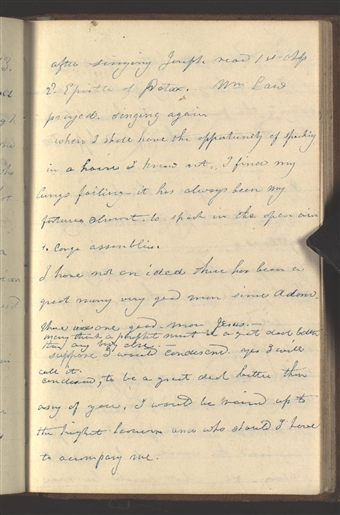 after singing Joseph read 1st chp
2d Epistle of Petar. Wm Law
prayed. singing again
when I shall have the opportunity of speaking
in a house I know not, I find my
lungs failing - it has always been my
fortune almost, to speak in the open air
to large assemblies.
I have not an idea there has been a
great many very good men since Adam
there was one good man Jesus. -
many think a prophet must be a great deal better
than any body else. -
suppose I would condescend. yes I will
call it
condescend, to be a great deal better than
any of you, I would be raised up to
the highest heavens and who should I have
to accompany me.